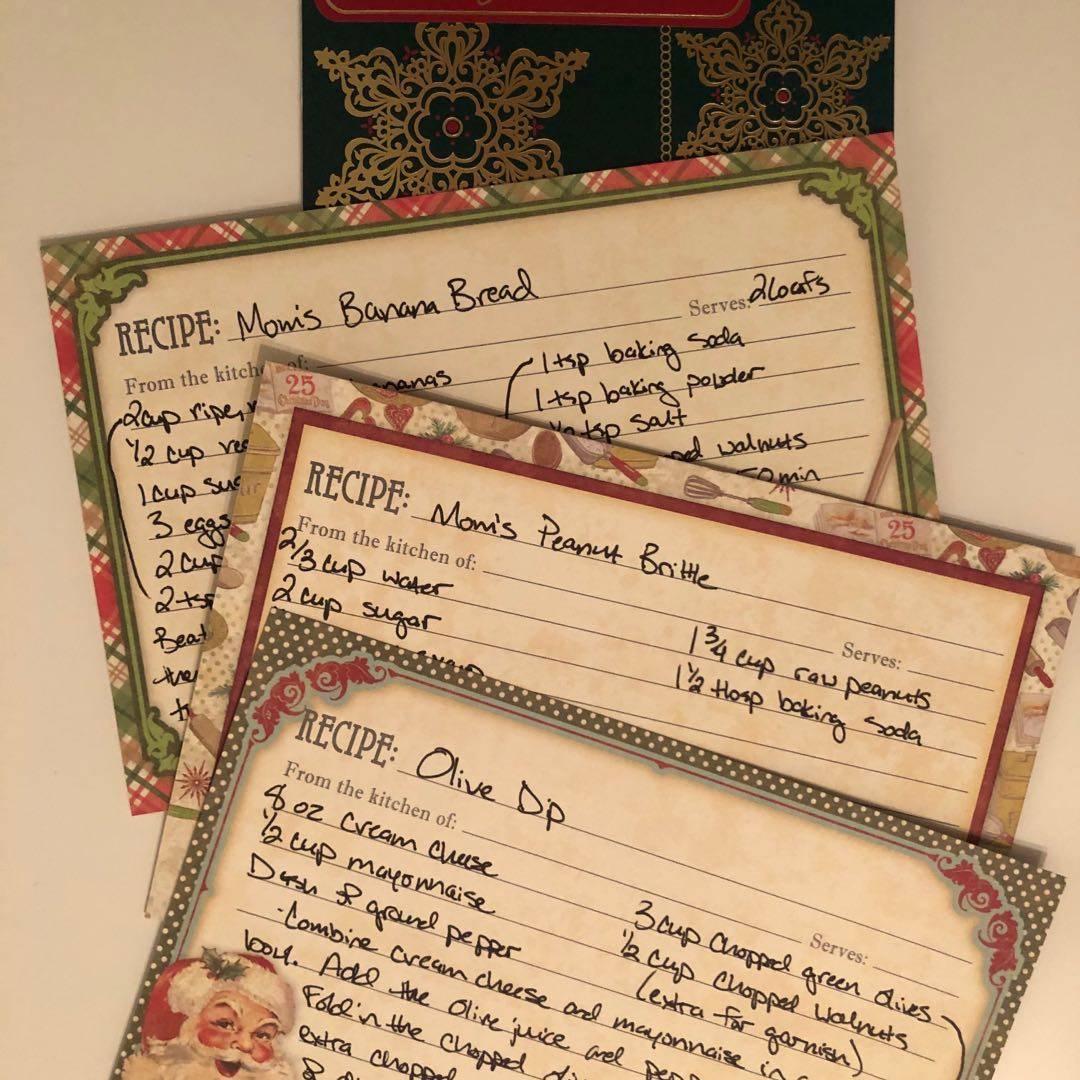 RECIPE: Mom's Banana Bread
Serves: 2 loafs
From the kitchen of:
2 cup ripe,
1/2 cup
1 cup
3 eggs
2 cup
2 tsp
Beat
1 tsp baking soda
1 tsp baking powder
tsp salt
walnuts
min
25
RECIPE: Mom's Peanut Brittle
From the kitchen of:
Serves:
2/3 cup water
2 cup sugar
1 3/4 cup raw peanuts
1 1/2 tbsp baking soda
25
RECIPE: Olive Dip
From the kitchen of:
Serves:
8 oz cream cheese
1/2 cup mayonnaise
Dash of ground pepper
3 cup chopped green olives
1/2 cup chopped walnuts
(extra for garnish)
·Combine cream cheese and mayonnaise in a
bowl. Add the olive juice and
Fold in the chopped
extra chopped